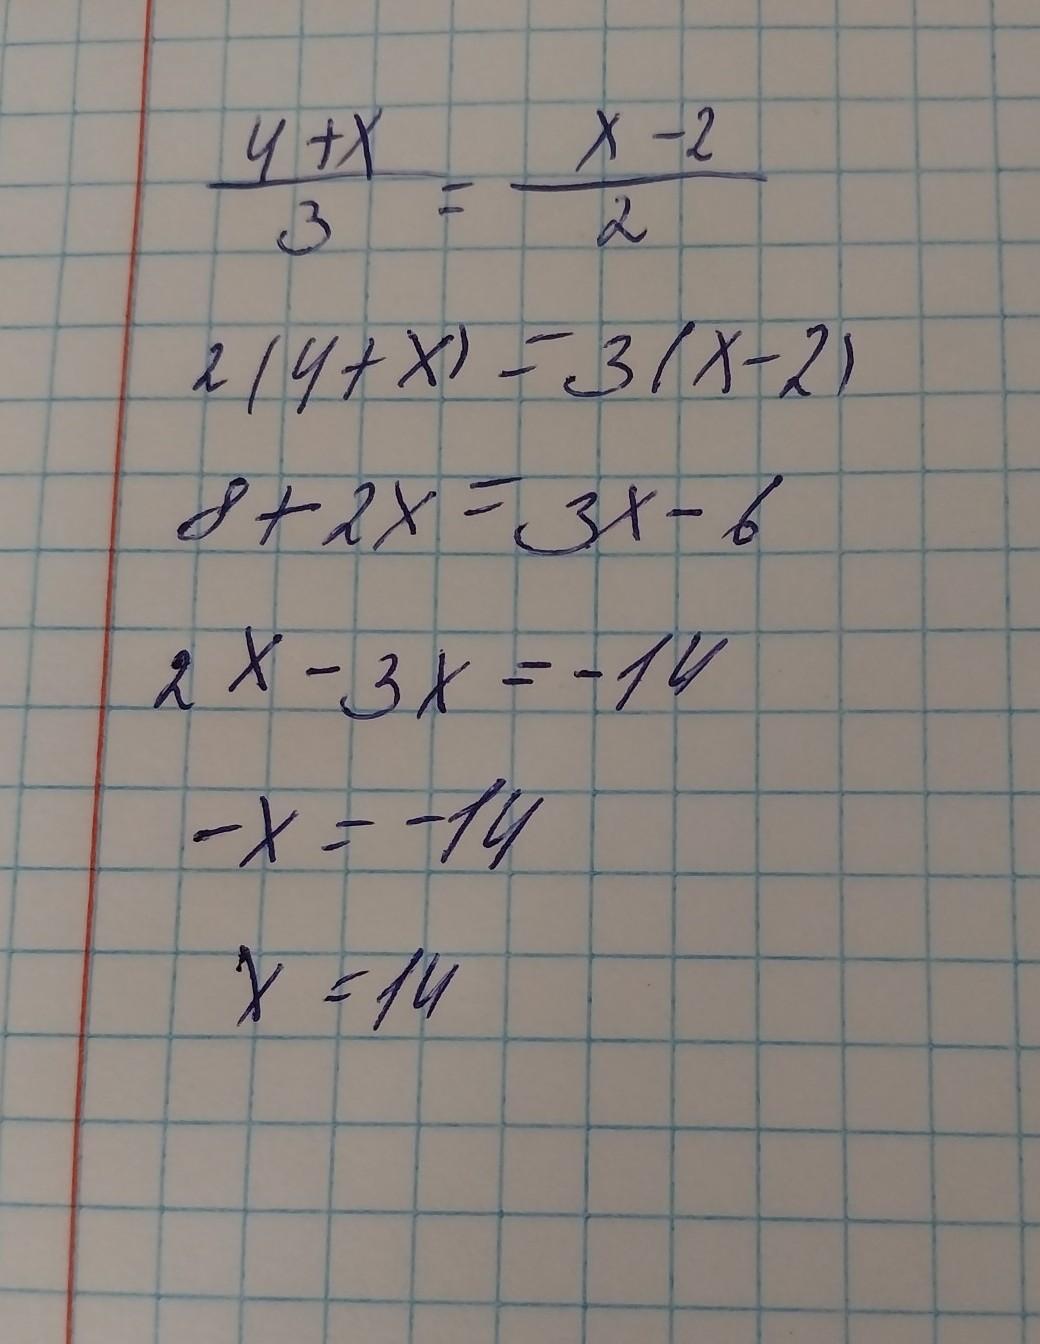 4+x/3 = x-2/2
2(4+x) = 3(x-2)
8+2x = 3x-6
2x-3x = -14
-x = -14
x = 14